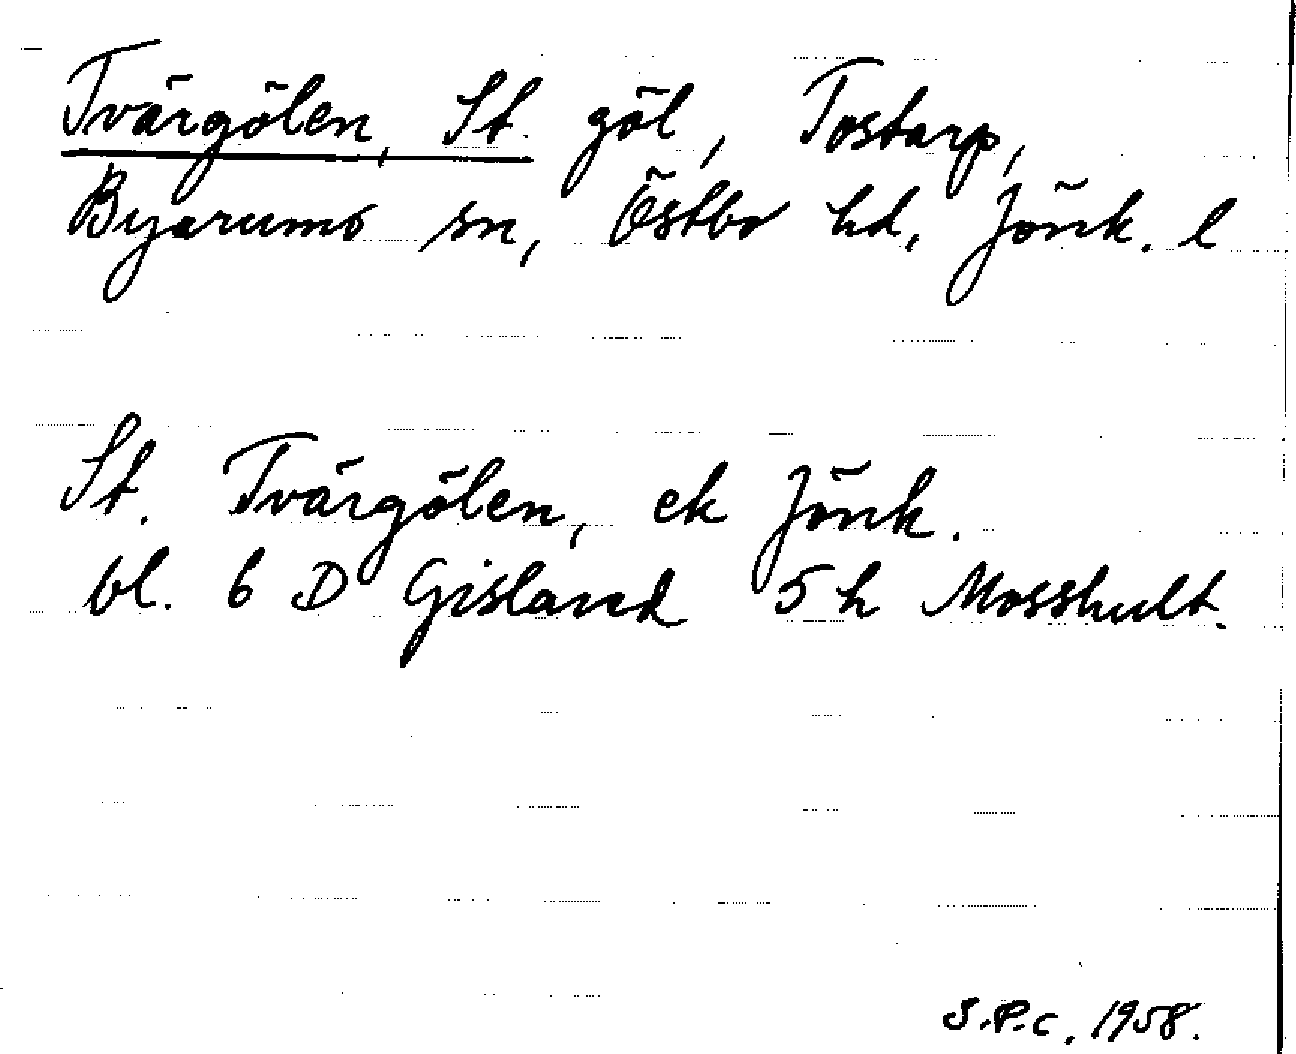 Tvärgölen, St. göl, Tostarp,
Byarums sn, Östbo hd, Jönk. l
St. Tvärgölen, ek Jönk.
bl. 6 D Gislaved 5 h Mosshult.
S.P.c, 1958.